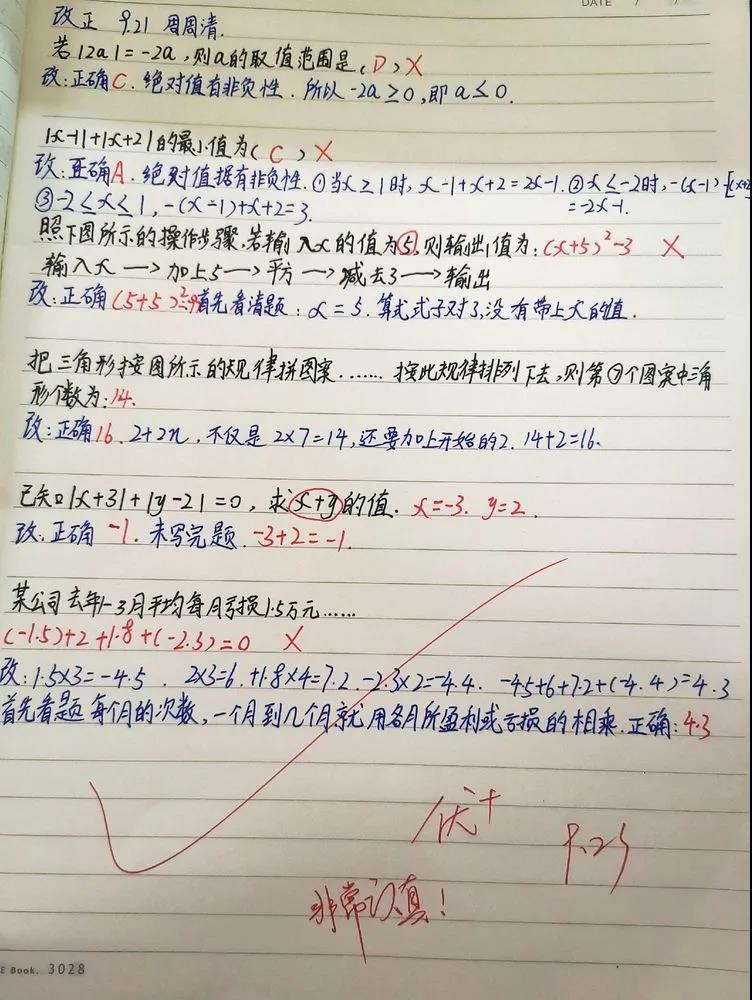 DATE / /
改正 9.21 周周清.
若|2a|=-2a,则a的取值范围是(D)X
改:正确C.绝对值有非负性.所以-2a≥0,即a≤0.
|x-1|+|x+2|的最小值为(C)X
改:正确A.绝对值据有非负性.①当x≥1时,x-1+x+2=2x-1.②x≤-2时,-(x-1)-[(x+2
=-2x-1.
③-2≤x≤1,-(x-1)+x+2=3.
照下图所示的操作步骤,若输入x的值为5,则输出值为:(x+5)²-3 X
输入x→加上5→平方→减去3→输出
改:正确(5+5)²首先看清题:x=5.算式式子对了,没有带上x的值.
把三角形按图所示的规律拼图案……按此规律排列下去,则第⑦个图案中三角
形个数为:14.
改:正确16.2+2n,不仅是2×7=14,还要加上开始的2.14+2=16.
已知|x+3|+|y-2|=0,求x+y的值.x=-3.y=2.
改:正确-1.未写完题.-3+2=-1.
某公司去年1-3月平均每月亏损1.5万元……
(-1.5)+2+1.8+(-2.3)=0 X
改:1.5×3=-4.5.2×3=6.+1.8×4=7.2.-2.3×2=-4.4.-4.5+6+7.2+(-4.4)=4.3
首先看题每个月的次数,一个月到几个月就用各月所盈利或亏损的相乘.正确:4.3
优+
9.23
非常认真!
E Book. 3028